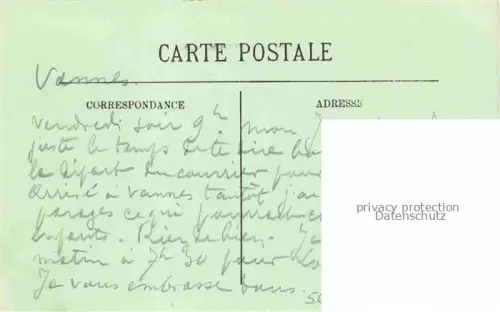 CARTE POSTALE
Vannes.
CORRESPONDANCE
ADRESSE
vendredi soir 9h mon
juste le temps de te dire
le départ du courrier pour
arrivé à Vannes tantôt j'ai
parages ce qui pourrait
enfants. Rien de bien. Je
matin à 7h 30 pour
Je vous embrasse tous.
privacy protection
Datenschutz